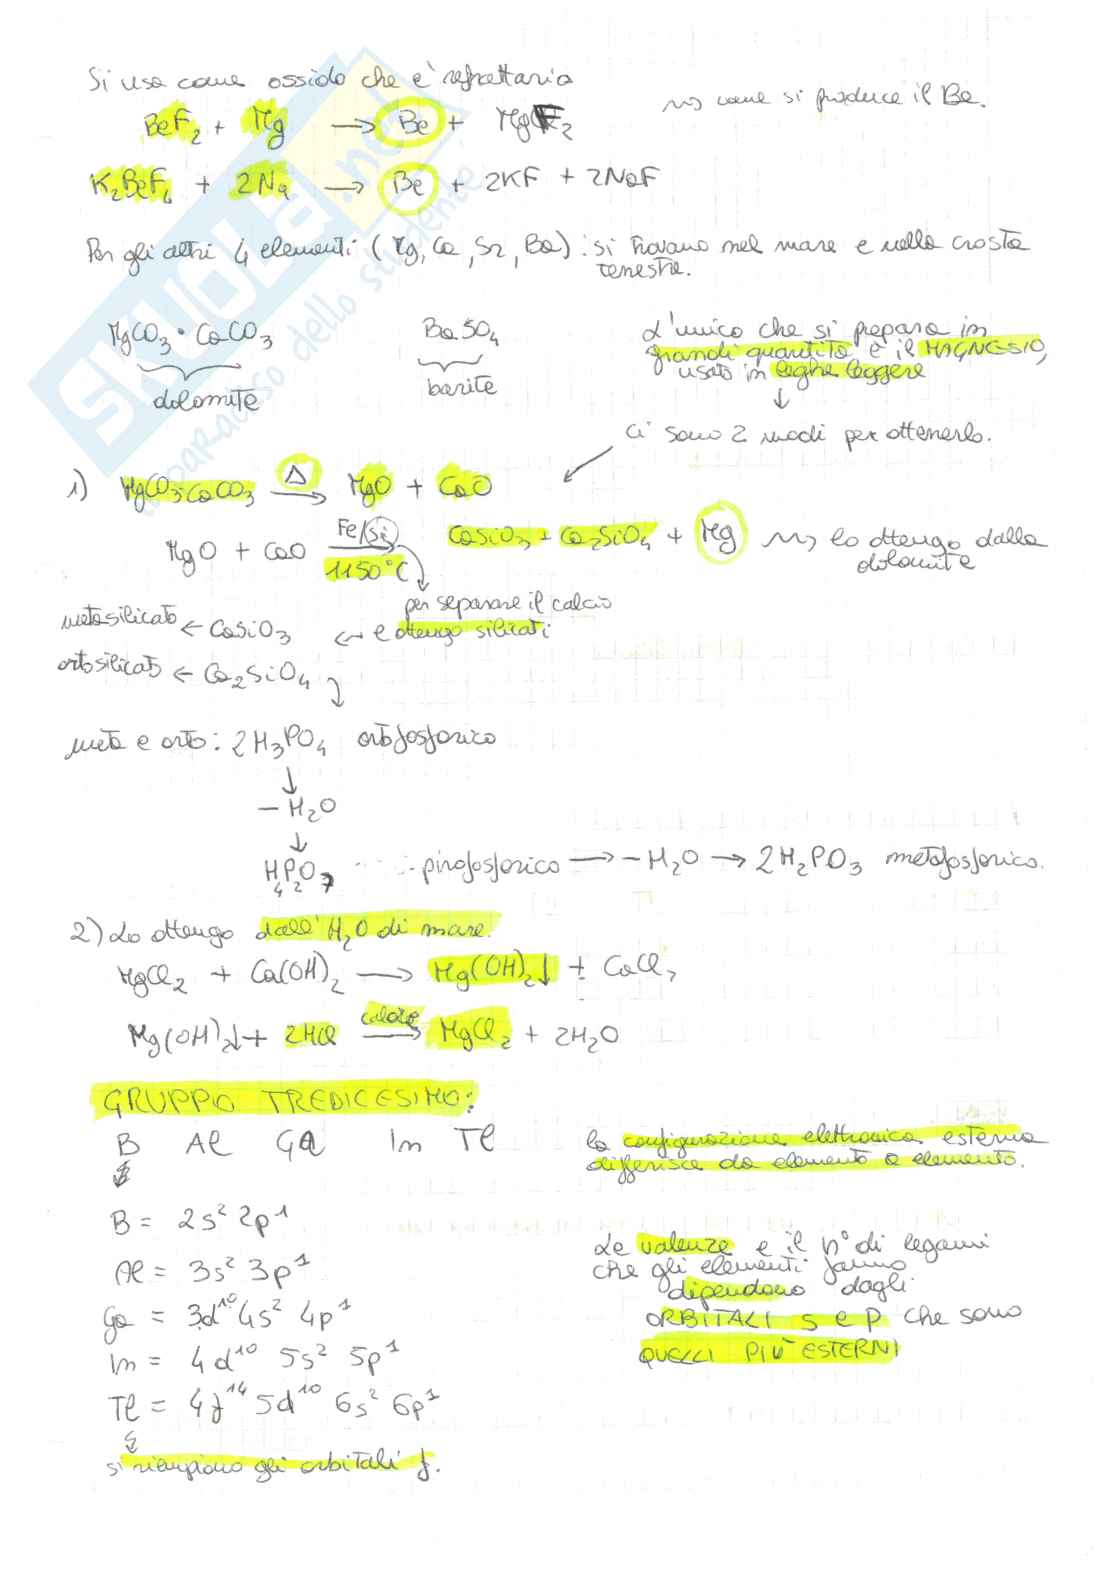 Si usa come ossido che e' refrattario
~> come si produce il Be.
BeF2 + Mg → Be + MgF2
K2BeF4 + 2Na → Be + 2KF + 2NaF
Per gli altri 4 elementi (Mg, Ca, Sr, Ba): si trovano nel mare e nella crosta
terrestre.
MgCO3 • CaCO3
BaSO4
dolomite
barite
L'unico che si prepara in
grandi quantità è il MAGNESIO,
usato in leghe leggere
↓
Ci sono 2 modi per ottenerlo.
1) MgCO3·CaCO3 →Δ MgO + CaO
MgO + CaO →Fe/Si 1150°C CaSiO3 + Ca2SiO4 + Mg ~> lo ottengo dalla
dolomite
per separare il calcio
e ottengo silicati
metasilicato ← CaSiO3
ortosilicato ← Ca2SiO4
meta e orto: 2H3PO4 ortofosforico
↓
- H2O
↓
H4P2O7 pirofosforico → - H2O → 2H2PO3 metafosforico.
2) Lo ottengo dall'H2O di mare.
MgCl2 + Ca(OH)2 → Mg(OH)2↓ + CaCl2
Mg(OH)2↓ + 2HCl →calore MgCl2 + 2H2O
GRUPPO TREDICESIMO:
B Al Ga In Tl
la configurazione elettronica esterna
differisce da elemento a elemento.
B = 2s² 2p¹
Al = 3s² 3p¹
Ga = 3d¹⁰ 4s² 4p¹
In = 4d¹⁰ 5s² 5p¹
Tl = 4f¹⁴ 5d¹⁰ 6s² 6p¹
si riempiono gli orbitali f.
Le valenze e il n° di legami
che gli elementi fanno
dipendono dagli
ORBITALI s e p che sono
QUELLI PIÙ ESTERNI
SKUOLA.net
il paradiso dello studente